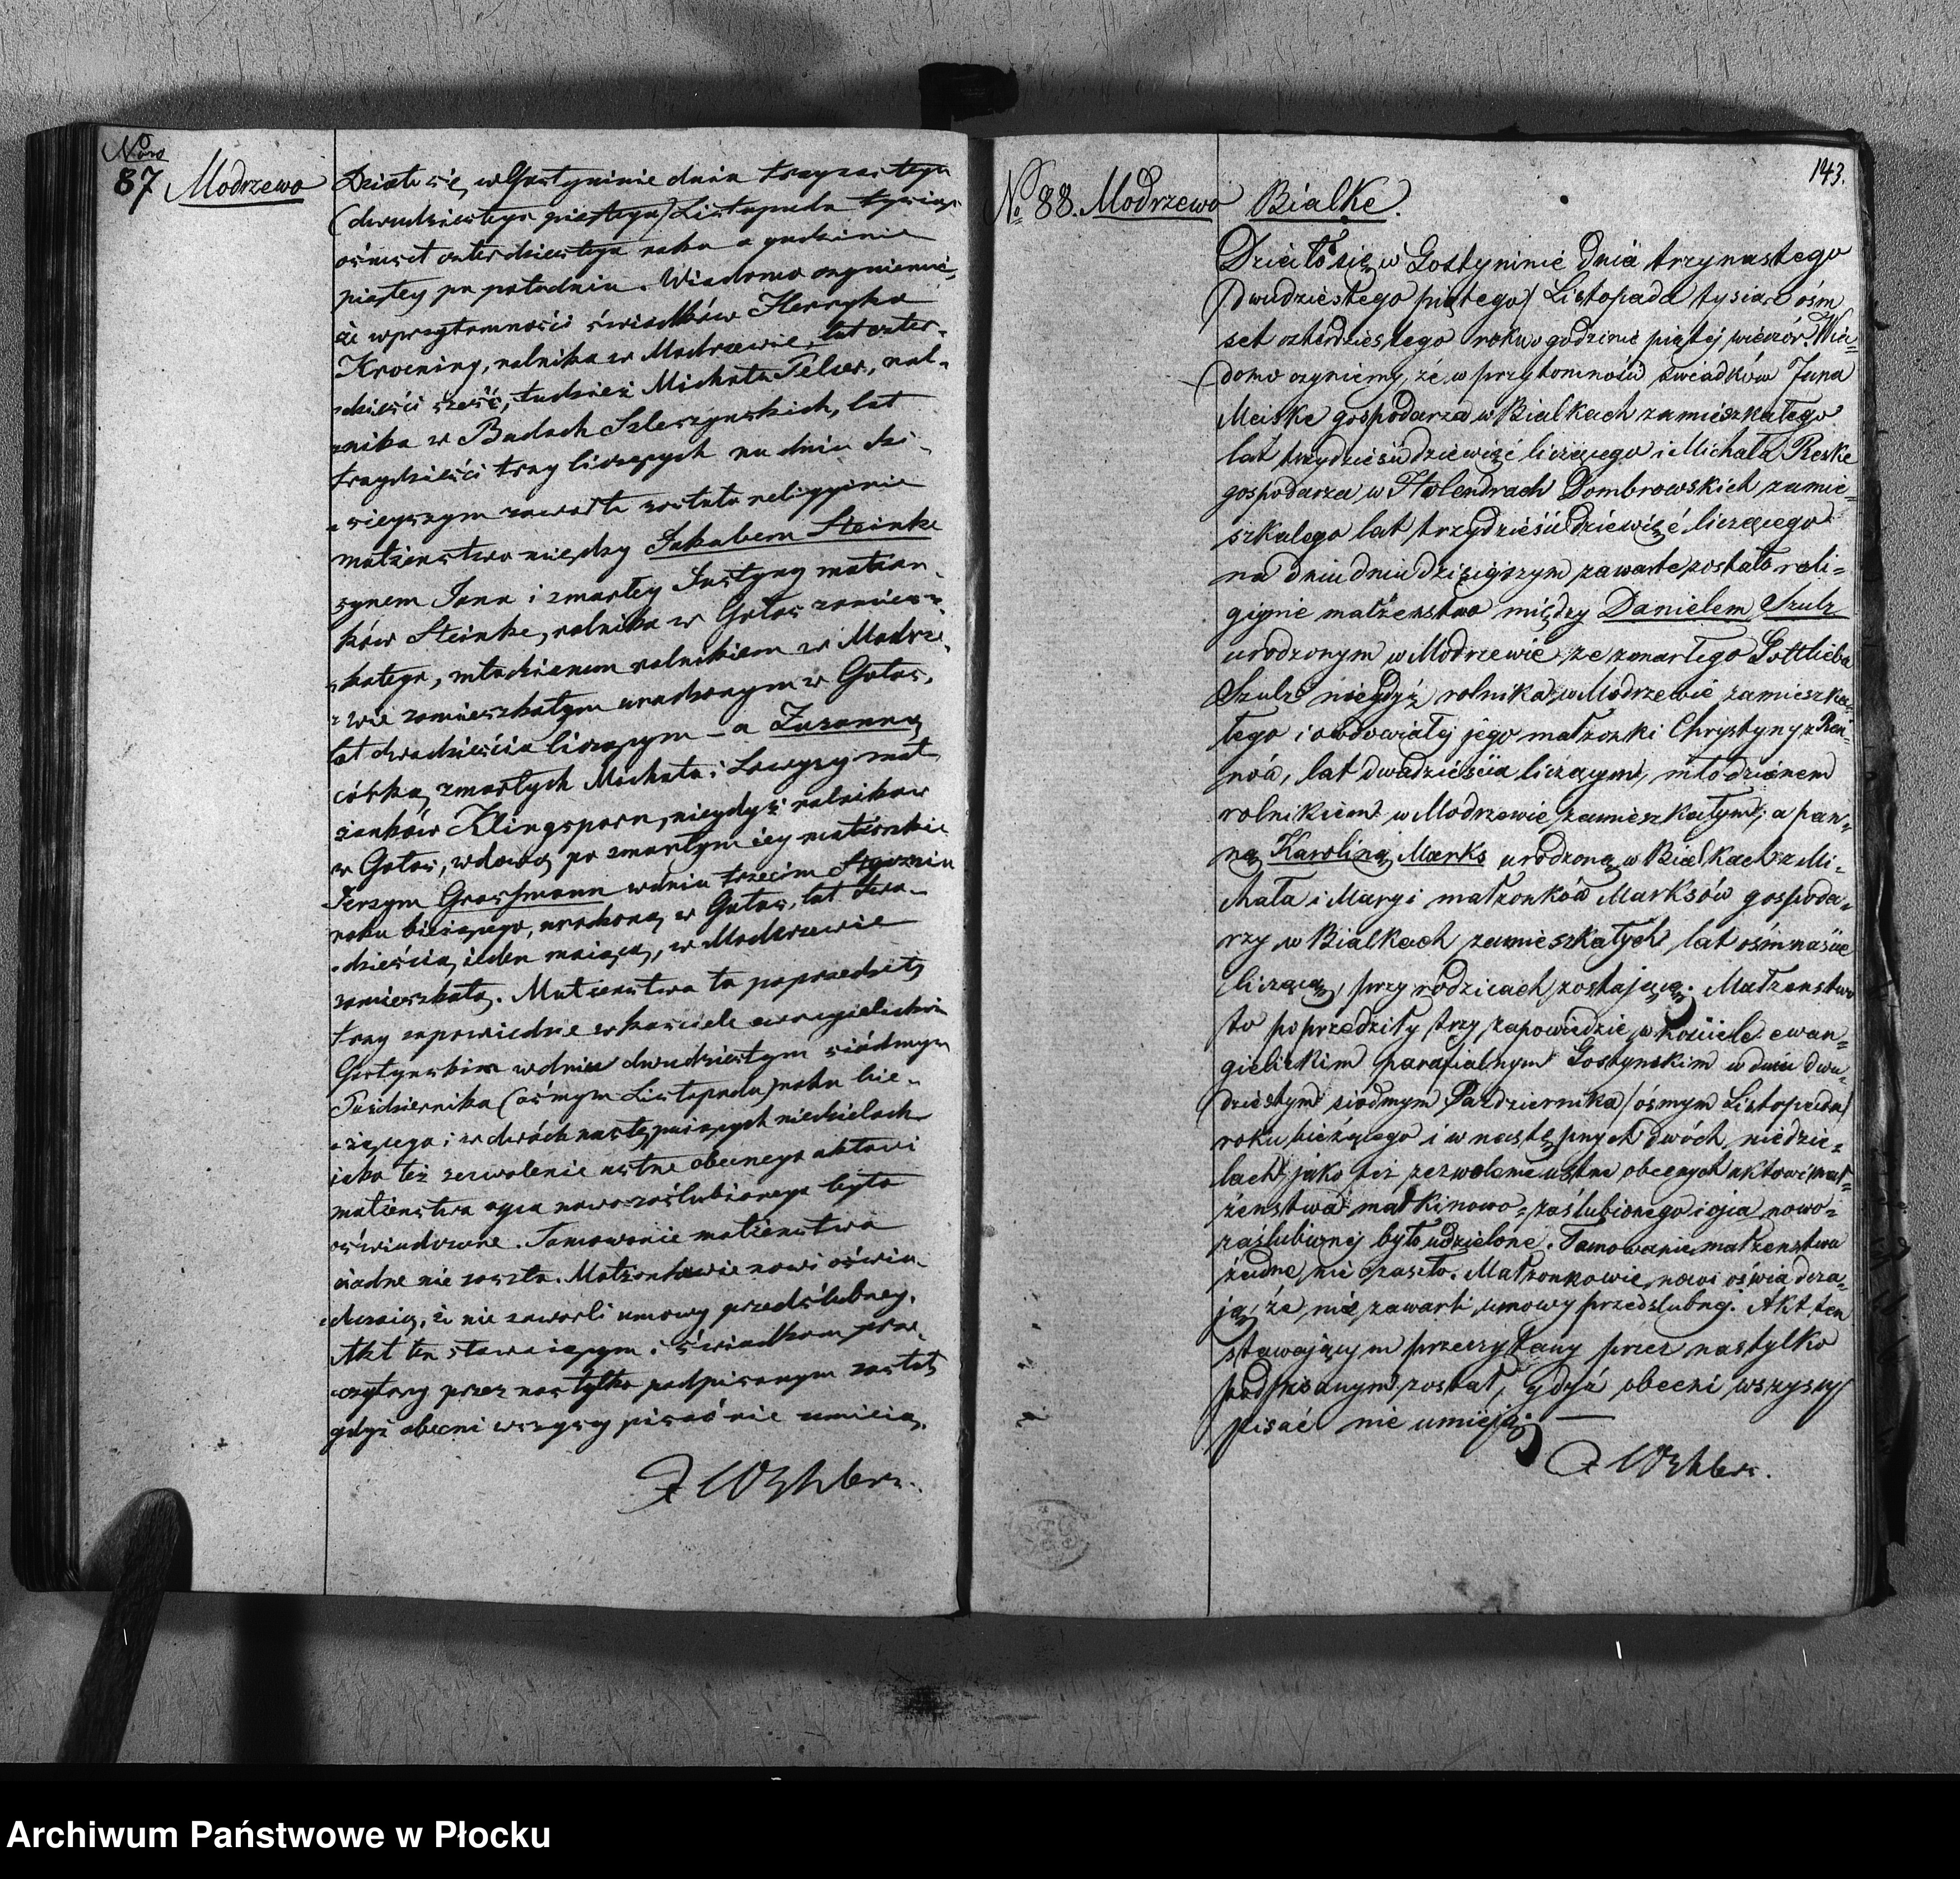 Nro
87 Modrzewo
Działo się w Gostyninie dnia trzynastego
(dwudziestego piątego) Listopada tysiąc
ośmset czterdziestego roku o godzinie
piątey po południu. Wiadomo czyniemy,
że w przytomności świadków Henryka
Kroening, rolnika w Modrzewie, lat czter-
dzieści sześć, tudzież Michała Telser, rol-
nika w Budach Szleszyńskich, lat
trzydzieści trzy liczących na dniu dzi-
sieyszym zawarte zostało religyinie
małżeństwo między Jakubem Steinke
synem Jana i zmarłey Justyny małżon-
ków Steinke, rolnika w Gołas zamiesz-
kałego, młodzianem rolnikiem w Modrze-
wie zamieszkałym urodzonym w Gołas,
lat dwadzieścia liczącym – a Zuzanną
córką zmarłych Michała i Lowyzy mał-
żonków Klingsporn, niegdyś rolników
w Gołas, wdową po zmarłym iey małżonku
Jerzym Grossmann w dniu trzecim Stycznia
roku bieżącego, urodzoną w Gołas, lat dwa-
dzieścia ieden maiącą, w Modrzewie
zamieszkałą. Małżeństwo to poprzedziły
trzy zapowiedzie w kościele ewangielickim
Gostyńskim w dniu dwudziestym siódmym
Października (ósmym Listopada) roku bie-
żącego i w dwóch następuiących niedzielach
iako też zezwolenie ustne obecnego aktowi
małżeństwa oyca nowozaślubionego było
oświadczone. Tamowanie małżeństwa
żadne nie zaszło. Małżonkowie nowi oświa-
dczaią, iż nie zawarli umowy przedślubney.
Akt ten stawaiącym i świadkom prze-
czytany przez nas tylko podpisanym został
gdyż obecni wszyscy pisać nie umieią.
No 88. Modrzewo Bialke.
143.
Działo się w Gostyninie dnia trzynastego
(dwudziestego piątego) Listopada tysiąc ośm
set czterdziestego roku o godzinie piątej wieczór. Wia=
domo czyniemy, że w przytomności świadków Jana
Meiske gospodarza w Bialkach zamieszkałego
lat trzydzieści dziewięć liczącego i Michała Reske
gospodarza w Holendrach Dombrowskich zamie=
szkałego lat trzydzieści dziewięć liczącego
na dniu dniu dzisiejszym zawarte zostało reli=
gijnie małżeństwo między Danielem Szulz
urodzonym w Modrzewie ze zmarłego Gottlieba
Szulz niegdyś rolnika w Modrzewie zamieszka=
łego i owdowiałej jego małżonki Chrystyny z
lat dwadzieścia liczącym, młodzianem
rolnikiem w Modrzewie zamieszkałym; a pan=
ną Karoliną Marks urodzoną w Bialkach z Mi=
chała i Maryi małżonków Marksów gospoda=
rzy w Bialkach zamieszkałych lat ośmnaście
liczącą, przy rodzicach zostającą. Małżeństwo
to poprzedziły trzy zapowiedzie w kościele ewan=
gielickim parafialnym Gostynskim w dniu dwu=
dziestym siódmym Października (ósmym Listopada)
roku bieżącego i w następnych dwóch niedzie=
lach jako też zezwolenie ustne obecnych aktowi mał=
żeństwa matki nowo-zaślubionego i ojca nowo=
zaślubionej było udzielone. Tamowanie małżeństwa
żadne nie zaszło. Małżonkowie nowi oświadcza=
ją, że nie zawarli umowy przedślubnej. Akt ten
stawającym przeczytany przez nas tylko
podpisanym został, gdyż obecni wszyscy
pisać nie umieją. —
Archiwum Państwowe w Płocku